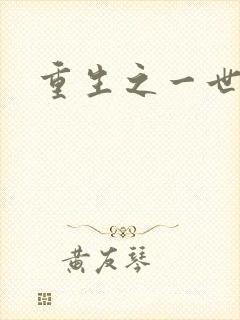 重生之一世
黄友琴